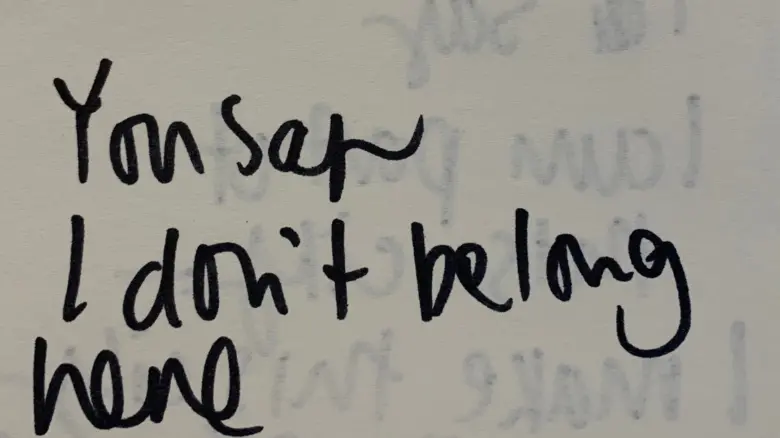 You say
I don't belong
here